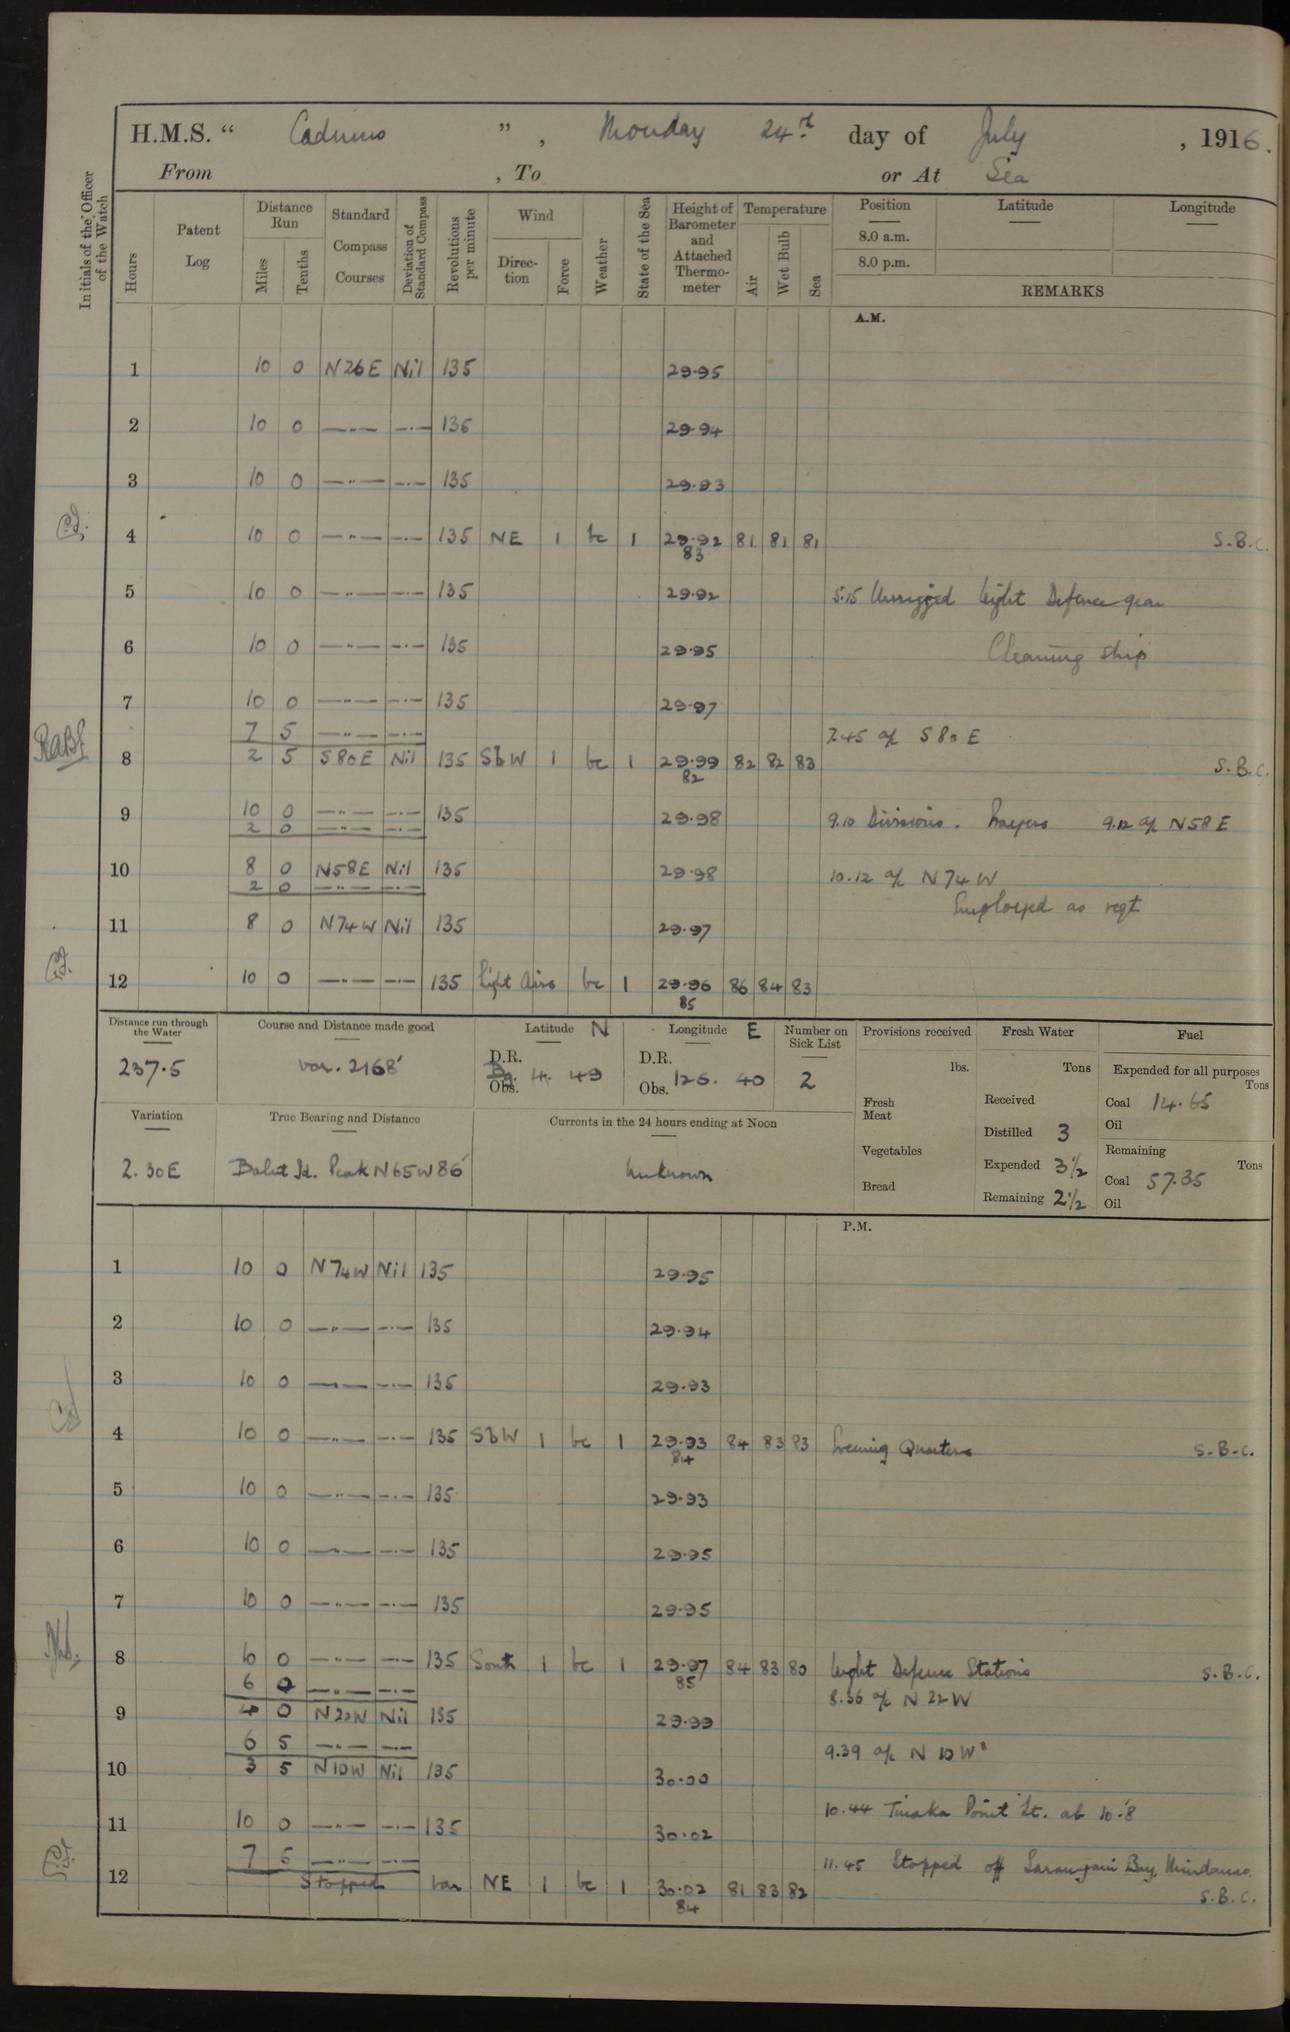 H.M.S. “ Cadmus ” , Monday 24th day of July , 1916.
From , To or At Sea
Initials of the Officer of the Watch
Hours
Patent Log
Distance Run
Miles
Tenths
Standard Compass Courses
Deviation of Standard Compass
Revolutions per minute
Wind
Direction
Force
Weather
State of the Sea
Height of Barometer and Attached Thermometer
Temperature
Air
Wet Bulb
Sea
Position Latitude Longitude
8.0 a.m.
8.0 p.m.
REMARKS
A.M.
1 10 0 N26E Nil 135 29.95
2 10 0 —"— —"— 136 29.94
3 10 0 —"— —"— 135 29.93
4 10 0 —"— —"— 135 NE 1 bc 1 29.92 81 81 81 S.B.C.
83
5 10 0 —"— —"— 135 29.92 5.15 Unrigged Night Defence gear
6 10 0 —"— —"— 135 29.95 Cleaning ship
7 10 0 —"— —"— 135 29.97
7 5 —"— —"— 7.45 a/c S80E
8 2 5 S80E Nil 135 SbW 1 bc 1 29.99 82 82 83 S.B.C.
82
9 10 0 —"— —"— 135 29.98 9.10 Divisions. Prayers 9.12 a/c N58E
2 0 —"— —"—
10 8 0 N58E Nil 135 29.98 10.12 a/c N74W
2 0 —"— —"— Employed as reqt
11 8 0 N74W Nil 135 29.97
12 10 0 —"— —"— 135 light airs bc 1 29.96 86 84 83
85
Distance run through the Water
237.5
Course and Distance made good
var. 2168'
Latitude N
D.R.
Obs. 4. 49
Longitude E
D.R.
Obs. 125. 40
Number on Sick List
2
Provisions received
lbs.
Fresh Meat
Vegetables
Bread
Fresh Water
Tons
Received
Distilled 3
Expended 3½
Remaining 2½
Fuel
Expended for all purposes
Tons
Coal 14.65
Oil
Remaining
Tons
Coal 57.35
Oil
Variation
2.30E
True Bearing and Distance
Balut Id. Peak N65W 86'
Currents in the 24 hours ending at Noon
Unknown
P.M.
1 10 0 N74W Nil 135 29.95
2 10 0 —"— —"— 135 29.94
3 10 0 —"— —"— 135 29.93
4 10 0 —"— —"— 135 SbW 1 bc 1 29.93 84 83 83 Evening Quarters S.B.C.
84
5 10 0 —"— —"— 135 29.93
6 10 0 —"— —"— 135 29.95
7 10 0 —"— —"— 135 29.95
8 10 0 —"— —"— 135 South 1 bc 1 29.97 84 83 80 Night Defence Stations S.B.C.
85
6 0 —"— —"— 8.36 a/c N22W
9 4 0 N22W Nil 135 29.99
6 5 —"— —"— 9.39 a/c N10W
10 3 5 N10W Nil 135 30.00
10.44 Tinaka Point Lt. ab 10.'8
11 10 0 —"— —"— 135 30.02
7 5 —"— —"— 11.45 Stopped off Sarangani Bay, Mindanao.
12 Stopped var NE 1 bc 1 30.02 81 83 82 S.B.C.
84